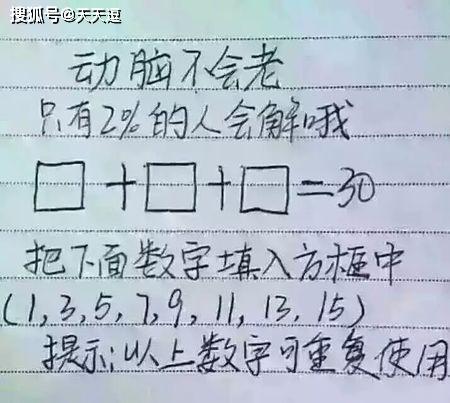 搜狐号@天天逗
动脑不会老
只有2%的人会解哦
□+□+□=30
把下面数字填入方框中
(1,3,5,7,9,11,13,15)
提示:以上数字可重复使用